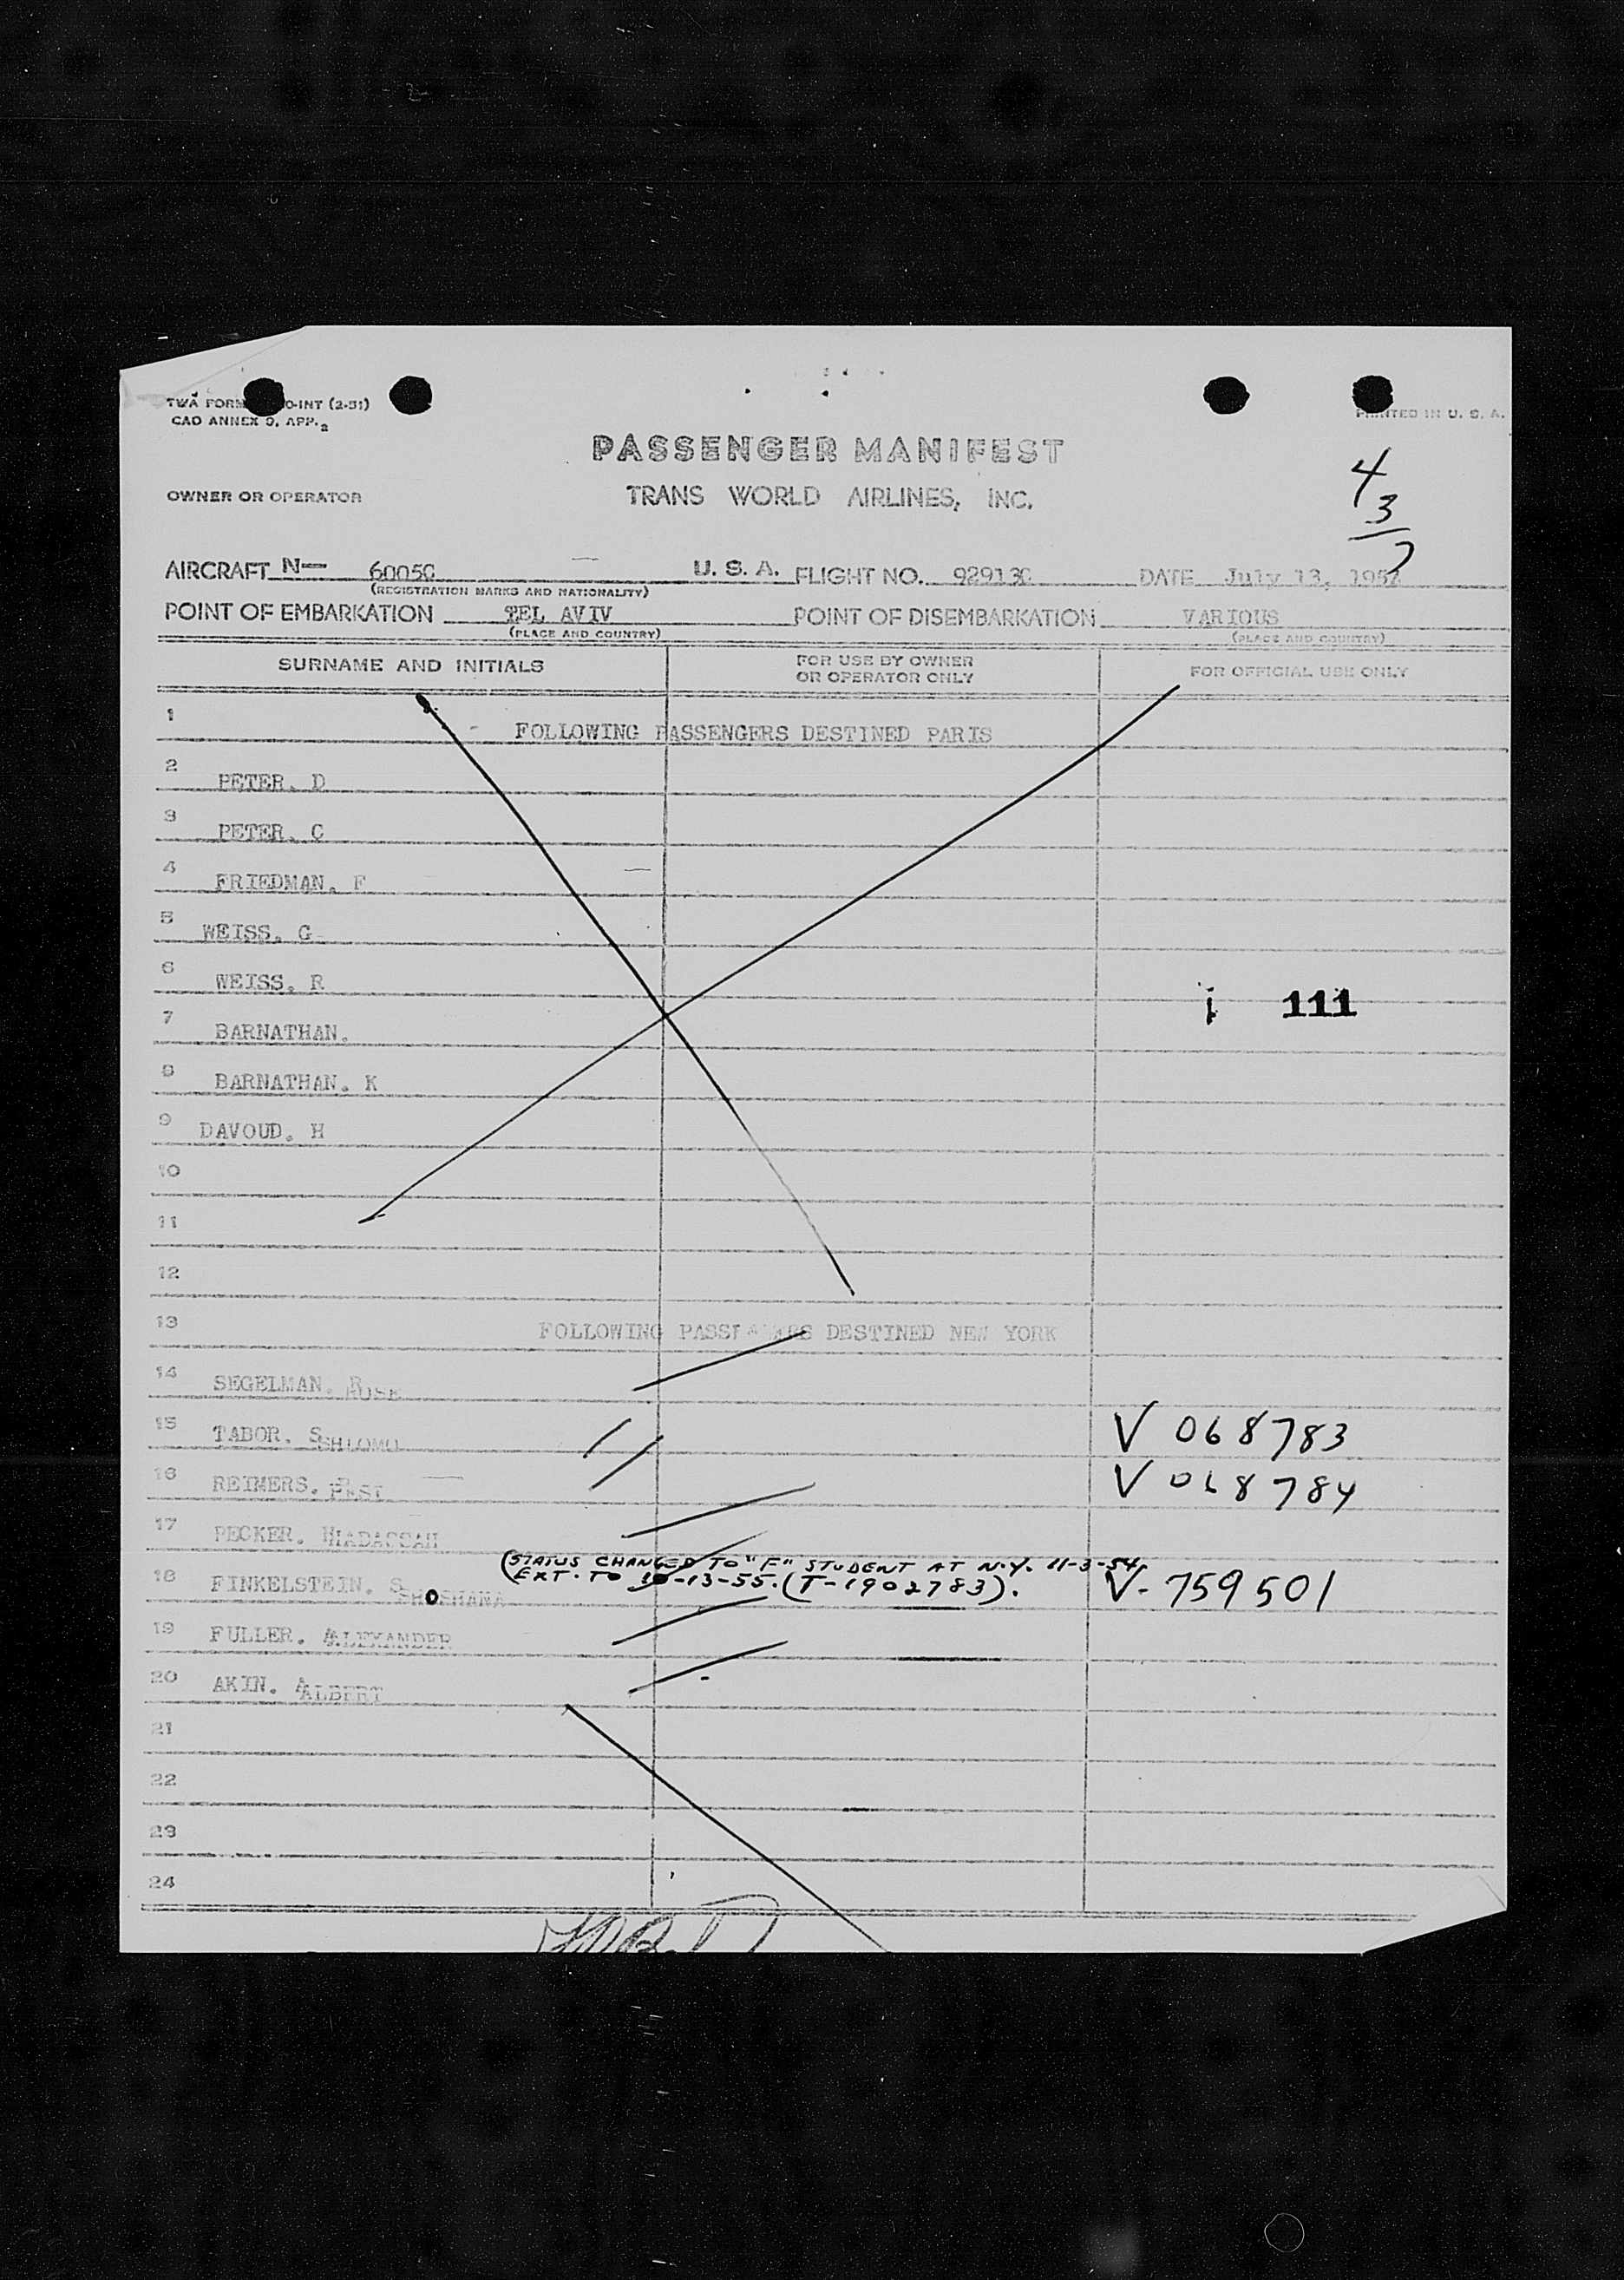 TWA FORM O-INT (2-51)
CAO ANNEX 9, APP. 2
PRINTED IN U. S. A.
PASSENGER MANIFEST
OWNER OR OPERATOR
TRANS WORLD AIRLINES, INC.
4
3
7
AIRCRAFT N— 6005C U. S. A. FLIGHT NO. 92913C DATE July 13, 195
(REGISTRATION MARKS AND NATIONALITY)
POINT OF EMBARKATION TEL AVIV POINT OF DISEMBARKATION VARIOUS
(PLACE AND COUNTRY) (PLACE AND COUNTRY)
SURNAME AND INITIALS FOR USE BY OWNER OR OPERATOR ONLY FOR OFFICIAL USE ONLY
1 FOLLOWING PASSENGERS DESTINED PARIS
2 PETER. D
3 PETER. C
4 FRIEDMAN. F
5 WEISS. G
6 WEISS. R
111
7 BARNATHAN.
8 BARNATHAN. K
9 DAVOUD. H
10
11
12
13 FOLLOWING PASSENGERS DESTINED NEW YORK
14 SEGELMAN. ROSE
15 TABOR. SHLOMO V 068783
16 REIMERS. V 068784
17 PECKER. HADASSAH
(STATUS CHANGED TO "F" STUDENT AT N.Y. 11-3-54,
EXT. TO 10-13-55. (T-1902783).
18 FINKELSTEIN. SHOSHANA V-759501
19 FULLER. ALEXANDER
20 AKIN. ALBERT
21
22
23
24